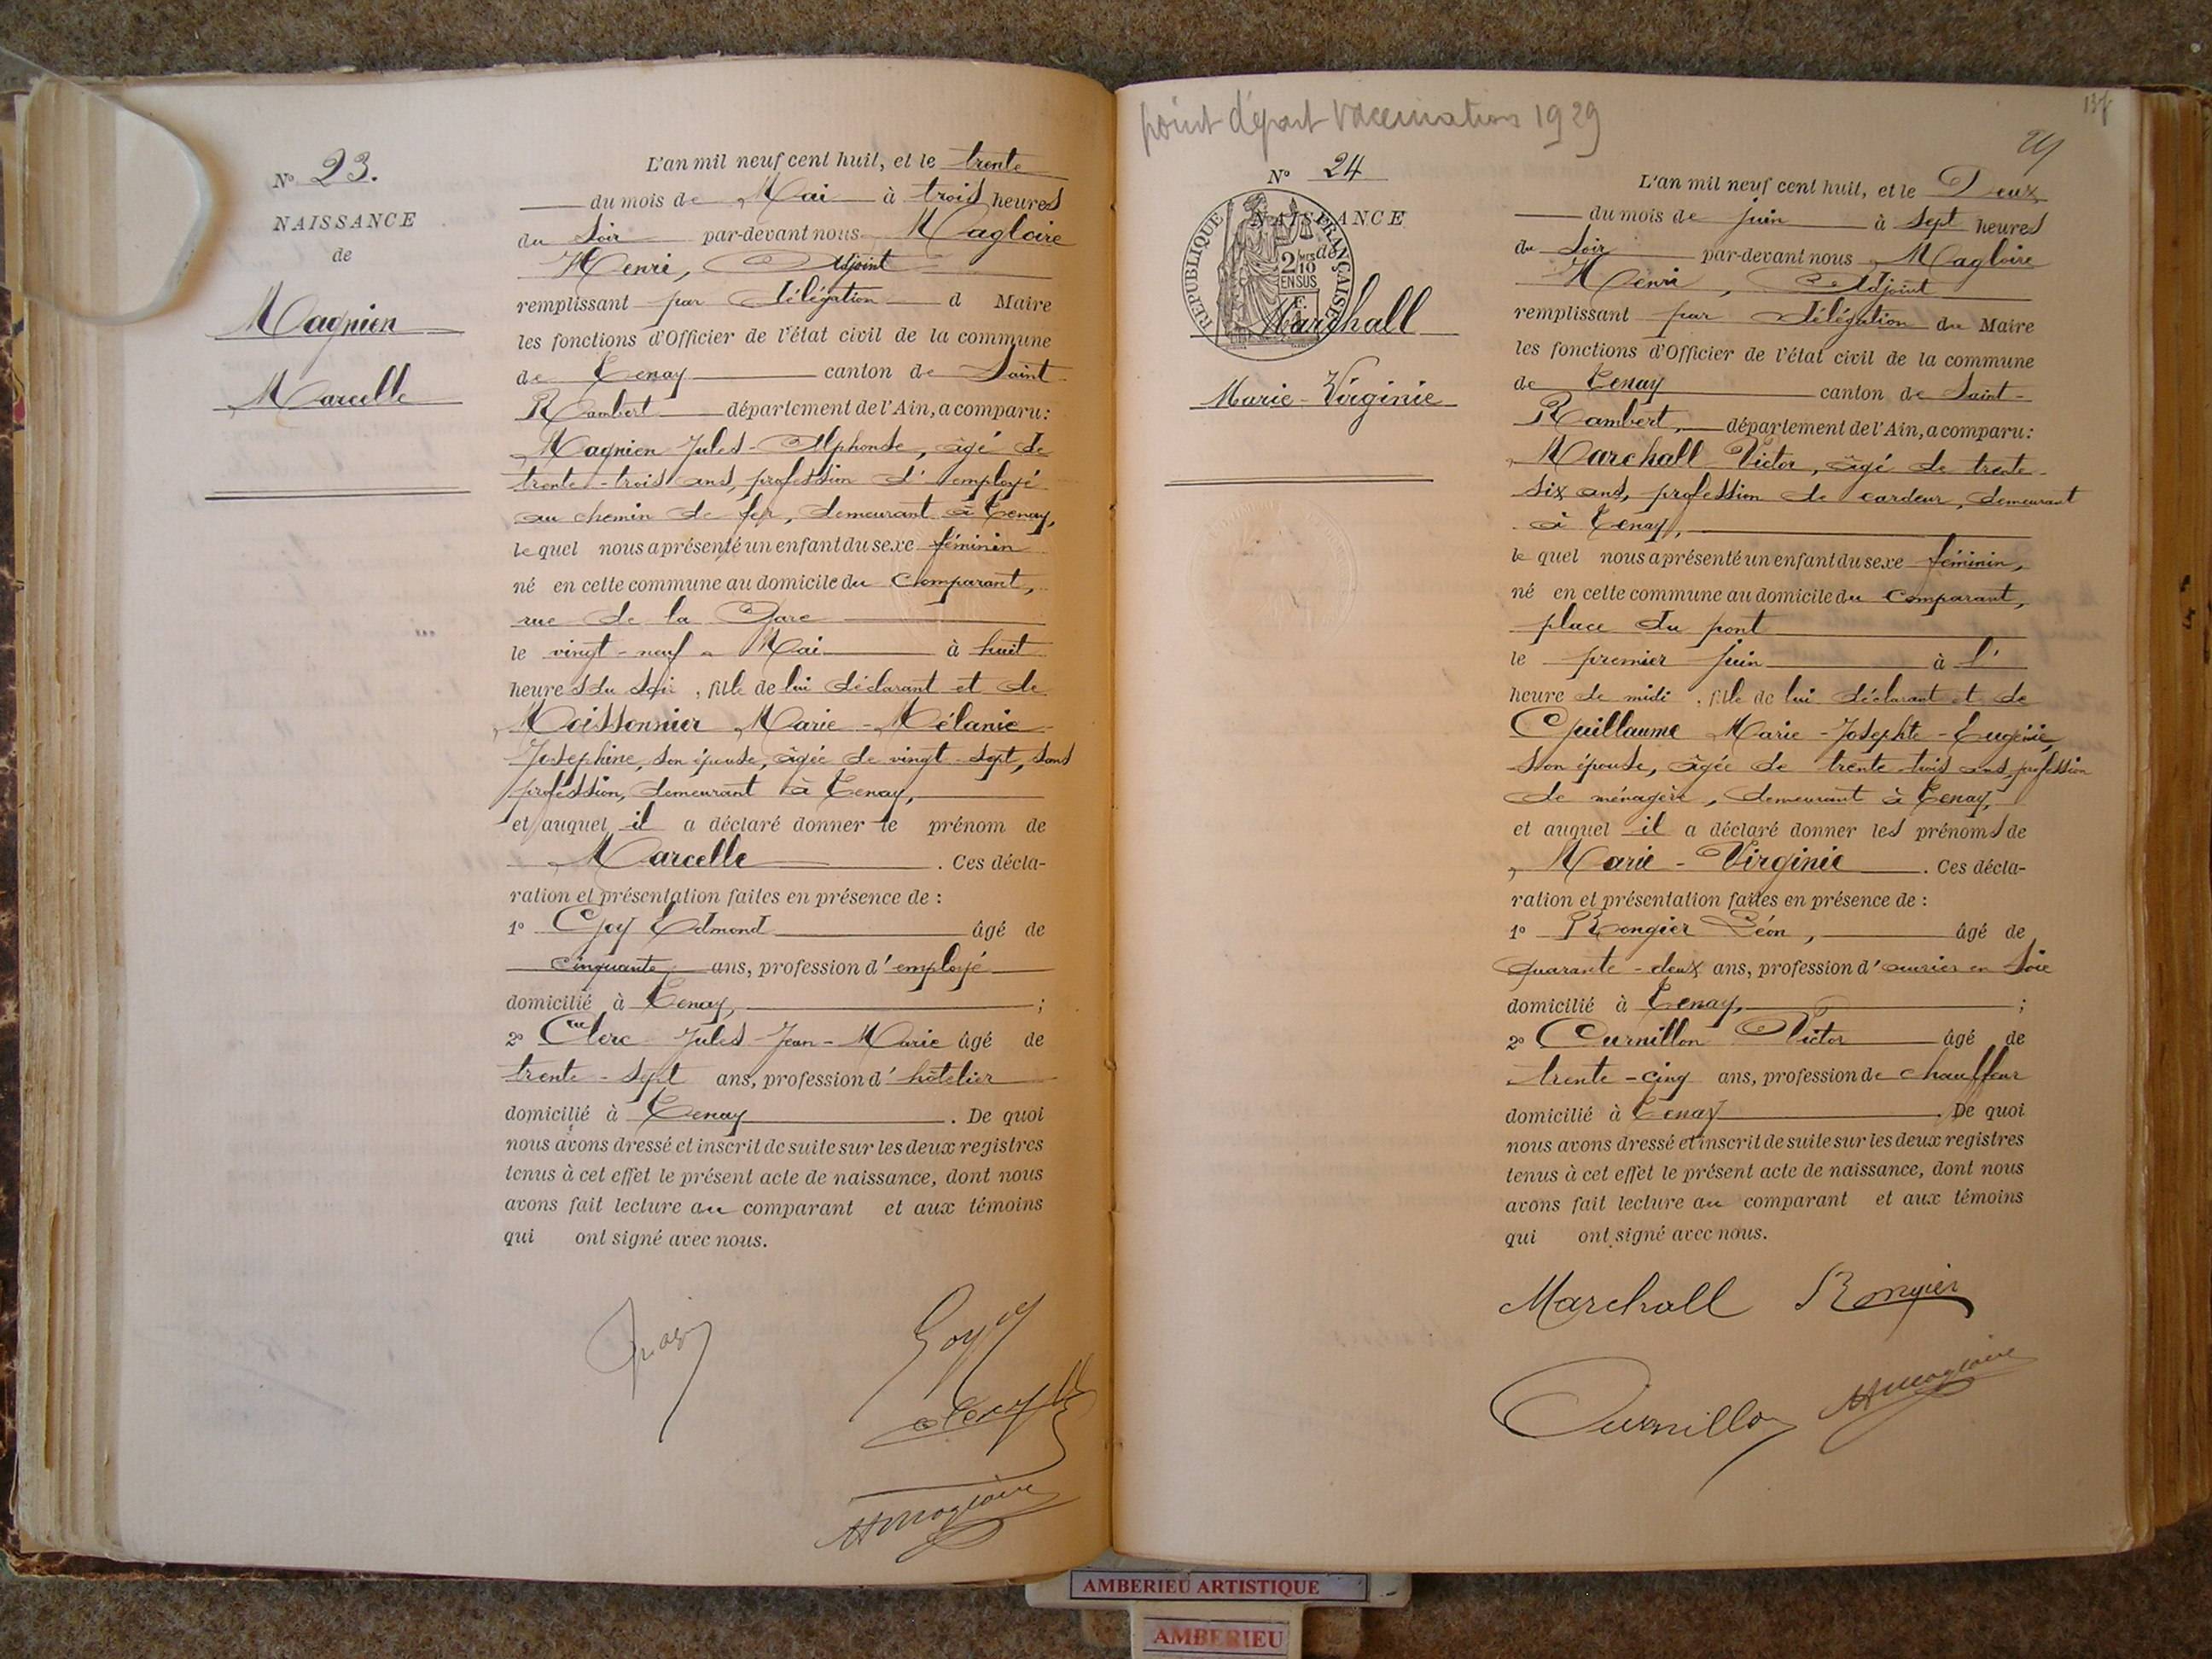 N° 23.
NAISSANCE
de
Magnien
Marcelle
L'an mil neuf cent huit, et le trente
du mois de Mai à trois heures
du soir par-devant nous Magloire
Henri, Adjoint
remplissant par délégation d Maire
les fonctions d'Officier de l'état civil de la commune
de Tenay canton de Saint-
Rambert département de l'Ain, a comparu:
Magnien Jules-Alphonse, âgé de
trente-trois ans, profession d'employé
au chemin de fer, demeurant à Tenay,
lequel nous a présenté un enfant du sexe féminin
né en cette commune au domicile du comparant,
rue de la Gare
le vingt-neuf Mai à huit
heures du soir, fille de lui déclarant et de
Moissonnier Marie-Mélanie-
Josephine, son épouse, âgée de vingt-sept, sans
profession, demeurant à Tenay,
et auquel il a déclaré donner le prénom de
Marcelle. Ces décla-
ration et présentation faites en présence de :
1° Goy Edmond âgé de
cinquante ans, profession d'employé
domicilié à Tenay, ;
2° Clerc Jules-Jean-Marie âgé de
trente-sept ans, profession d'hôtelier
domicilié à Tenay. De quoi
nous avons dressé et inscrit de suite sur les deux registres
tenus à cet effet le présent acte de naissance, dont nous
avons fait lecture au comparant et aux témoins
qui ont signé avec nous.
Goy
Clerc
HMagloire
point départ vaccinations 1929
137
N° 24
NAISSANCE
de
RÉPUBLIQUE FRANÇAISE
2/10
EN SUS
Marchall
Marie-Virginie
L'an mil neuf cent huit, et le Deux
du mois de juin à sept heures
du soir par-devant nous Magloire
Henri, Adjoint
remplissant par délégation du Maire
les fonctions d'Officier de l'état civil de la commune
de Tenay canton de Saint-
Rambert, département de l'Ain, a comparu:
Marchall Victor, âgé de trente-
six ans, profession de cardeur, demeurant
à Tenay,
lequel nous a présenté un enfant du sexe féminin,
né en cette commune au domicile du comparant,
place du pont
le premier juin à l'
heure de midi, fille de lui déclarant et de
Guillaume Marie-Josephte-Eugénie,
son épouse, âgée de trente-trois ans, profession
de ménagère, demeurant à Tenay,
et auquel il a déclaré donner les prénoms de
Marie-Virginie. Ces décla-
ration et présentation faites en présence de :
1° Rongier Léon, âgé de
quarante-deux ans, profession d'ouvrier en soie
domicilié à Tenay, ;
2° Curnillon Victor âgé de
trente-cinq ans, profession de chauffeur
domicilié à Tenay. De quoi
nous avons dressé et inscrit de suite sur les deux registres
tenus à cet effet le présent acte de naissance, dont nous
avons fait lecture au comparant et aux témoins
qui ont signé avec nous.
Marchall Rongier
Curnillon HMagloire
AMBERIEU ARTISTIQUE
AMBERIEU